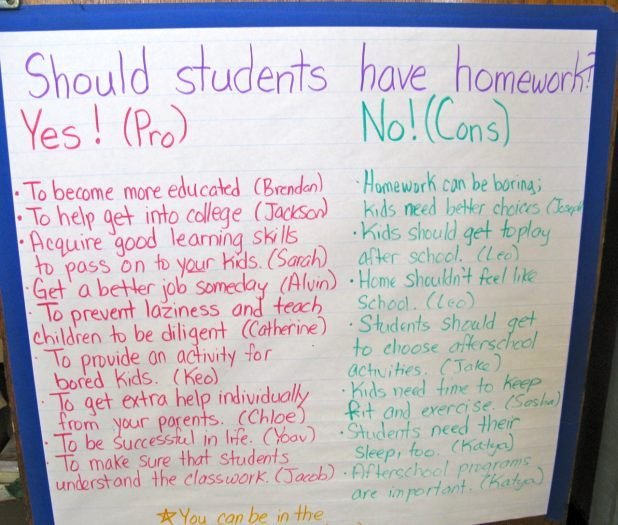 Should students have homework?
Yes! (Pro)
· To become more educated (Brendan)
· To help get into college (Jackson)
· Acquire good learning skills
to pass on to your kids. (Sarah)
· Get a better job someday (Alvin)
· To prevent laziness and teach
children to be diligent (Catherine)
· To provide an activity for
bored kids. (Keo)
· To get extra help individually
from your parents. (Chloe)
· To be successful in life. (Yoav)
· To make sure that students
understand the classwork. (Jacob)
No! (Cons)
· Homework can be boring;
kids need better choices (Joseph
· Kids should get to play
after school. (Leo)
· Home shouldn't feel like
School. (Leo)
· Students should get
to choose afterschool
activities. (Jake)
· Kids need time to keep
fit and exercise. (Sasha)
· Students need their
sleep, too. (Katya)
· Afterschool programs
are important. (Katya)
☆ You can be in the